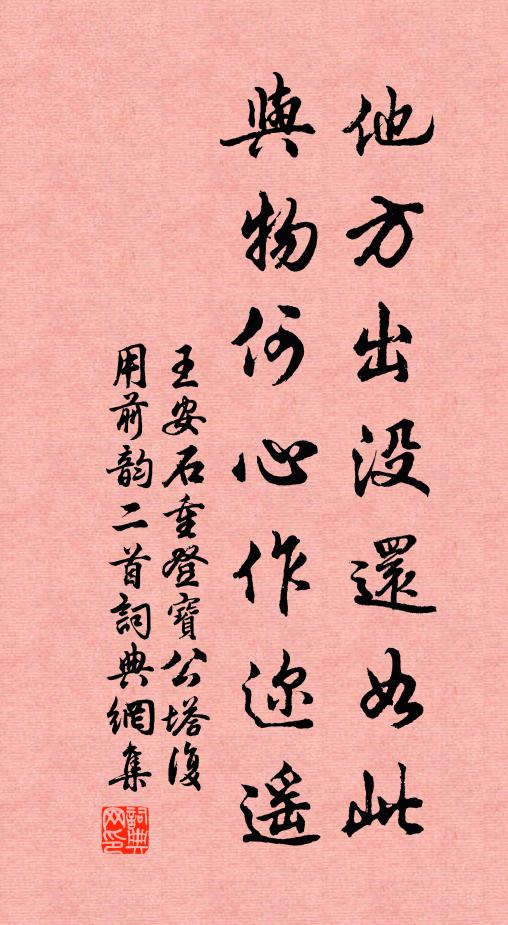 他方出没還如此
與物何心作迩遥
王安石重登寶公塔復
用前韵二首詞典網集
詞典网印